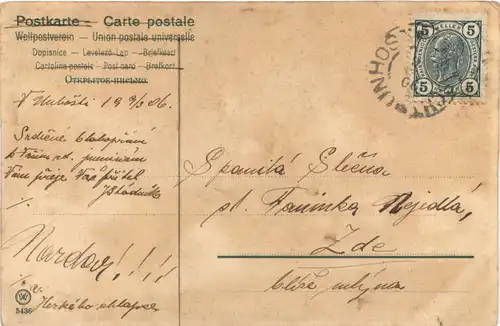 Postkarte — Carte postale
Weltpostverein — Union postale universelle
Dopisnice — Levelező-Lap — Briefkaart
Cartolina postale — Post card — Brefkort
Открытое письмо.
5 5
5 5
UNHOŠ
V Unhošti 19 3/3 06.
Srdečné blahopřání
k Vašim ct. jmeninám
Vám přeje Váš přítel
Nazdar!!!!
hezkého chlapce
Spanilá Slečna
sl. Faninka Nejedlá,
Zde
blíže mlýna
W
5436